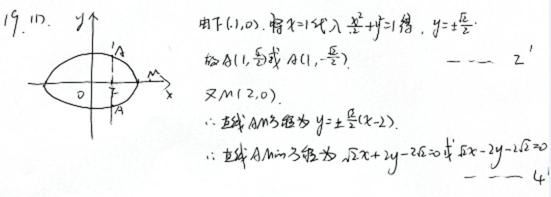 19. (1).
y
A
M
O
F
x
A
由F(1,0). 将x=1代入 x²/2+y²=1得, y=±√2/2.
故A(1,√2/2)或A(1,-√2/2). --- 2'
又M(2,0).
∴直线AM方程为 y=±√2/2(x-2).
∴直线AM的方程为 √2x+2y-2√2=0或√2x-2y-2√2=0
--- 4'